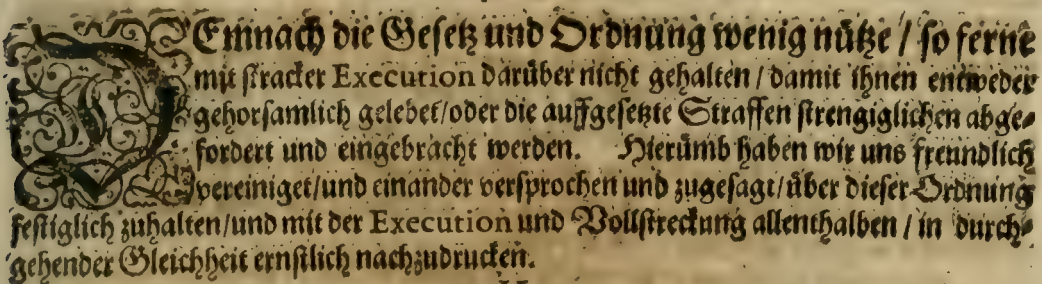 DEmnach die Gesetz und Ordnung wenig nütze / so ferne
mit stracker Execution darüber nicht gehalten / damit ihnen entweder
gehorsamlich gelebet/oder die auffgesetzte Straffen strengiglichen abge-
fordert und eingebracht werden. Hierümb haben wir uns freundlich
vereiniget/und einander versprochen und zugesagt/über dieser Ordnung
festiglich zuhalten/und mit der Execution und Vollstreckung allenthalben / in durch-
gehender Gleichheit ernstlich nachzudrucken.